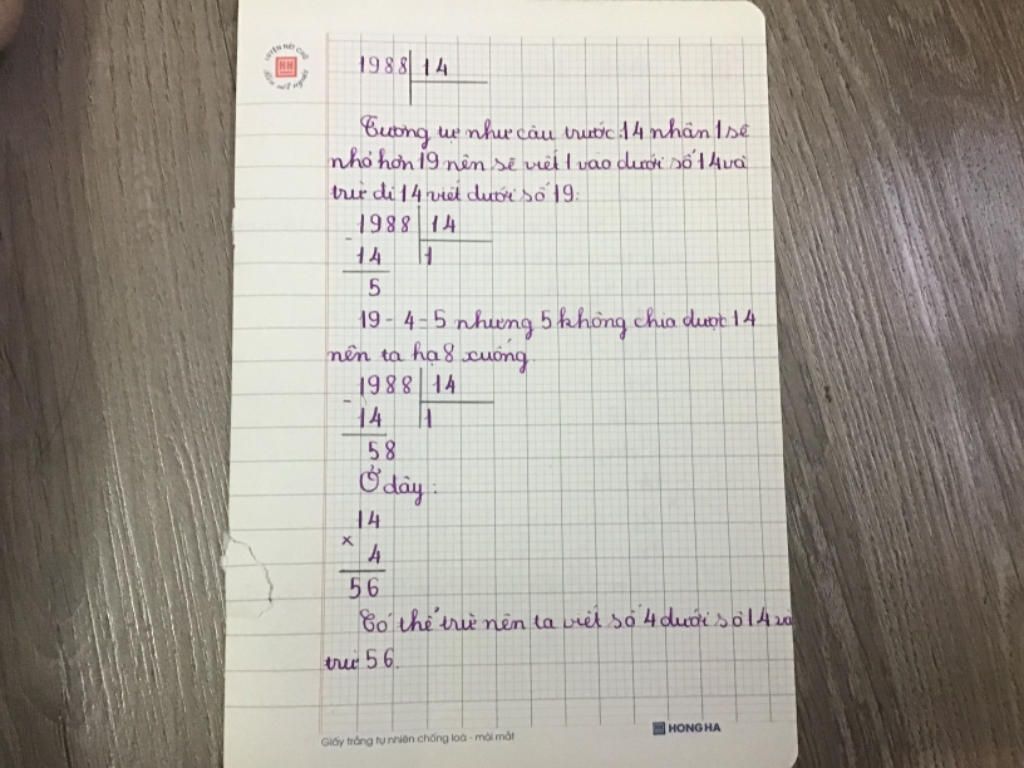 LUYỆN NÉT CHỮ
HH
Rèn nết người
1988 14
Tương tự như câu trước 14 nhân 1 sẽ
nhỏ hơn 19 nên sẽ viết 1 vào dưới số 14 và
trừ đi 14 viết dưới số 19:
1988 14
-
14 1
5
19 - 4 = 5 nhưng 5 không chia được 14
nên ta hạ 8 xuống.
1988 14
-
14 1
58
Ở đây:
14
×
4
56
Có thể trừ nên ta viết số 4 dưới số 14 và
trừ 56.
Giấy trắng tự nhiên chống loá - mỏi mắt
HONG HA